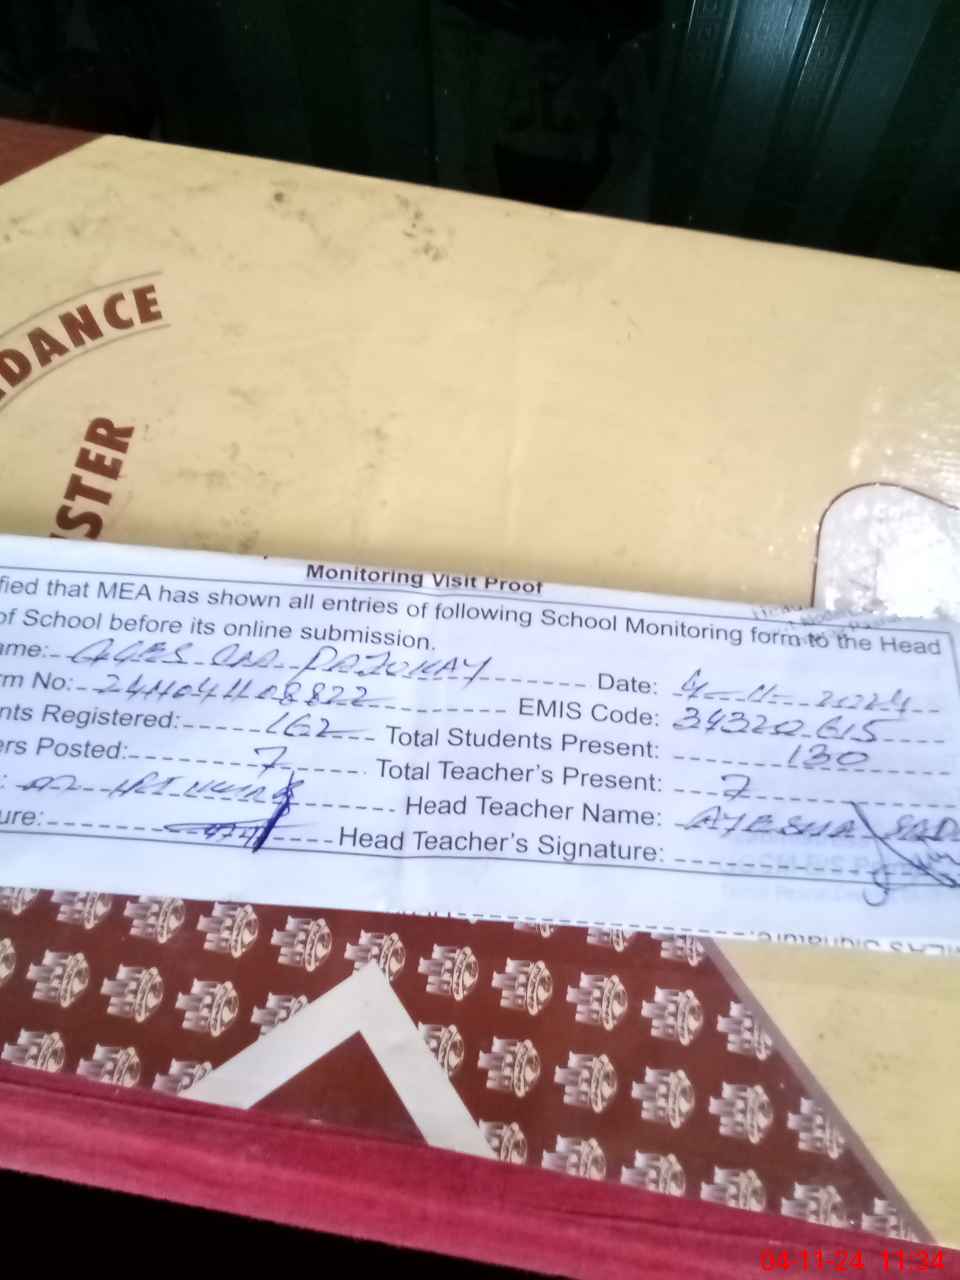 DANCE
STER
Monitoring Visit Proof
fied that MEA has shown all entries of following School Monitoring form to the Head
of School before its online submission.
ame: GGES Date: 4-11-2024
rm No: EMIS Code: 34320615
nts Registered: 162 Total Students Present: 130
ers Posted: 7 Total Teacher's Present: 7
: Head Teacher Name: AYESHA SAD
ure: Head Teacher's Signature:
04-11-24 11:34